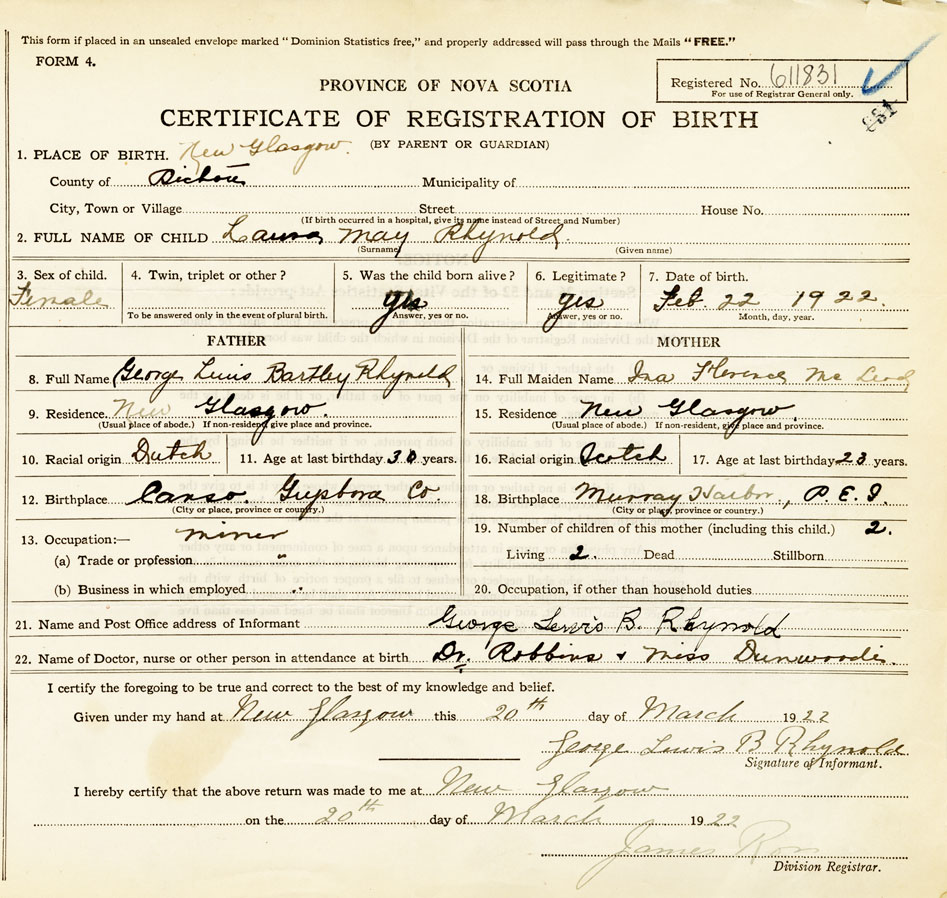 This form if placed in an unsealed envelope marked "Dominion Statistics free," and properly addressed will pass through the Mails "FREE."
FORM 4.
Registered No. 611831
For use of Registrar General only.
PROVINCE OF NOVA SCOTIA
CERTIFICATE OF REGISTRATION OF BIRTH
(BY PARENT OR GUARDIAN)
1. PLACE OF BIRTH. New Glasgow.
County of Pictou Municipality of
City, Town or Village Street House No.
(If birth occurred in a hospital, give its name instead of Street and Number)
2. FULL NAME OF CHILD Laura May Rhynold.
(Surname) (Given name)
3. Sex of child. 4. Twin, triplet or other? 5. Was the child born alive? 6. Legitimate? 7. Date of birth.
Female yes yes Feb. 22 1922.
To be answered only in the event of plural birth. Answer, yes or no. Answer, yes or no. Month, day, year.
FATHER MOTHER
8. Full Name George Luis Bartley Rhynold 14. Full Maiden Name Ina Florence Mc Leod
9. Residence. New Glasgow. 15. Residence New Glasgow.
(Usual place of abode.) If non-resident, give place and province. (Usual place of abode.) If non-resident, give place and province.
10. Racial origin Dutch 11. Age at last birthday 30 years. 16. Racial origin Scotch 17. Age at last birthday 23 years.
12. Birthplace Canso. Guysboro Co. 18. Birthplace Murray Harbor, P. E. I
(City or place, province or country.) (City or place, province or country.)
19. Number of children of this mother (including this child.) 2.
13. Occupation:— miner
Living 2. Dead Stillborn
(a) Trade or profession "
(b) Business in which employed " 20. Occupation, if other than household duties
21. Name and Post Office address of Informant George Lewis B. Rhynold
22. Name of Doctor, nurse or other person in attendance at birth Dr. Robbins + Miss Dunwoodie.
I certify the foregoing to be true and correct to the best of my knowledge and belief.
Given under my hand at New Glasgow this 20th day of March 1922
George Lewis B Rhynold
Signature of Informant.
I hereby certify that the above return was made to me at New Glasgow
on the 20th day of March 1922
James Ross
Division Registrar.